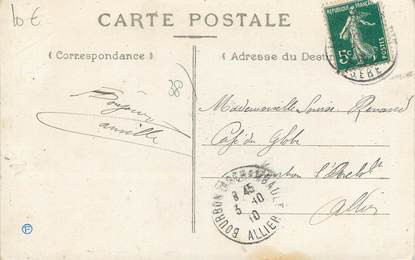 10 €
CARTE POSTALE
( Correspondance )
( Adresse du Dest
RÉPUBLIQUE FRANÇAISE
5c
POSTES
ISÈRE
38
Mademoiselle Louise Renaud
Café du Globe
Bourbon l'Archbt
Allier
BOURBON-L'ARCHAMBAULT
8 45
5 -10
10
ALLIER